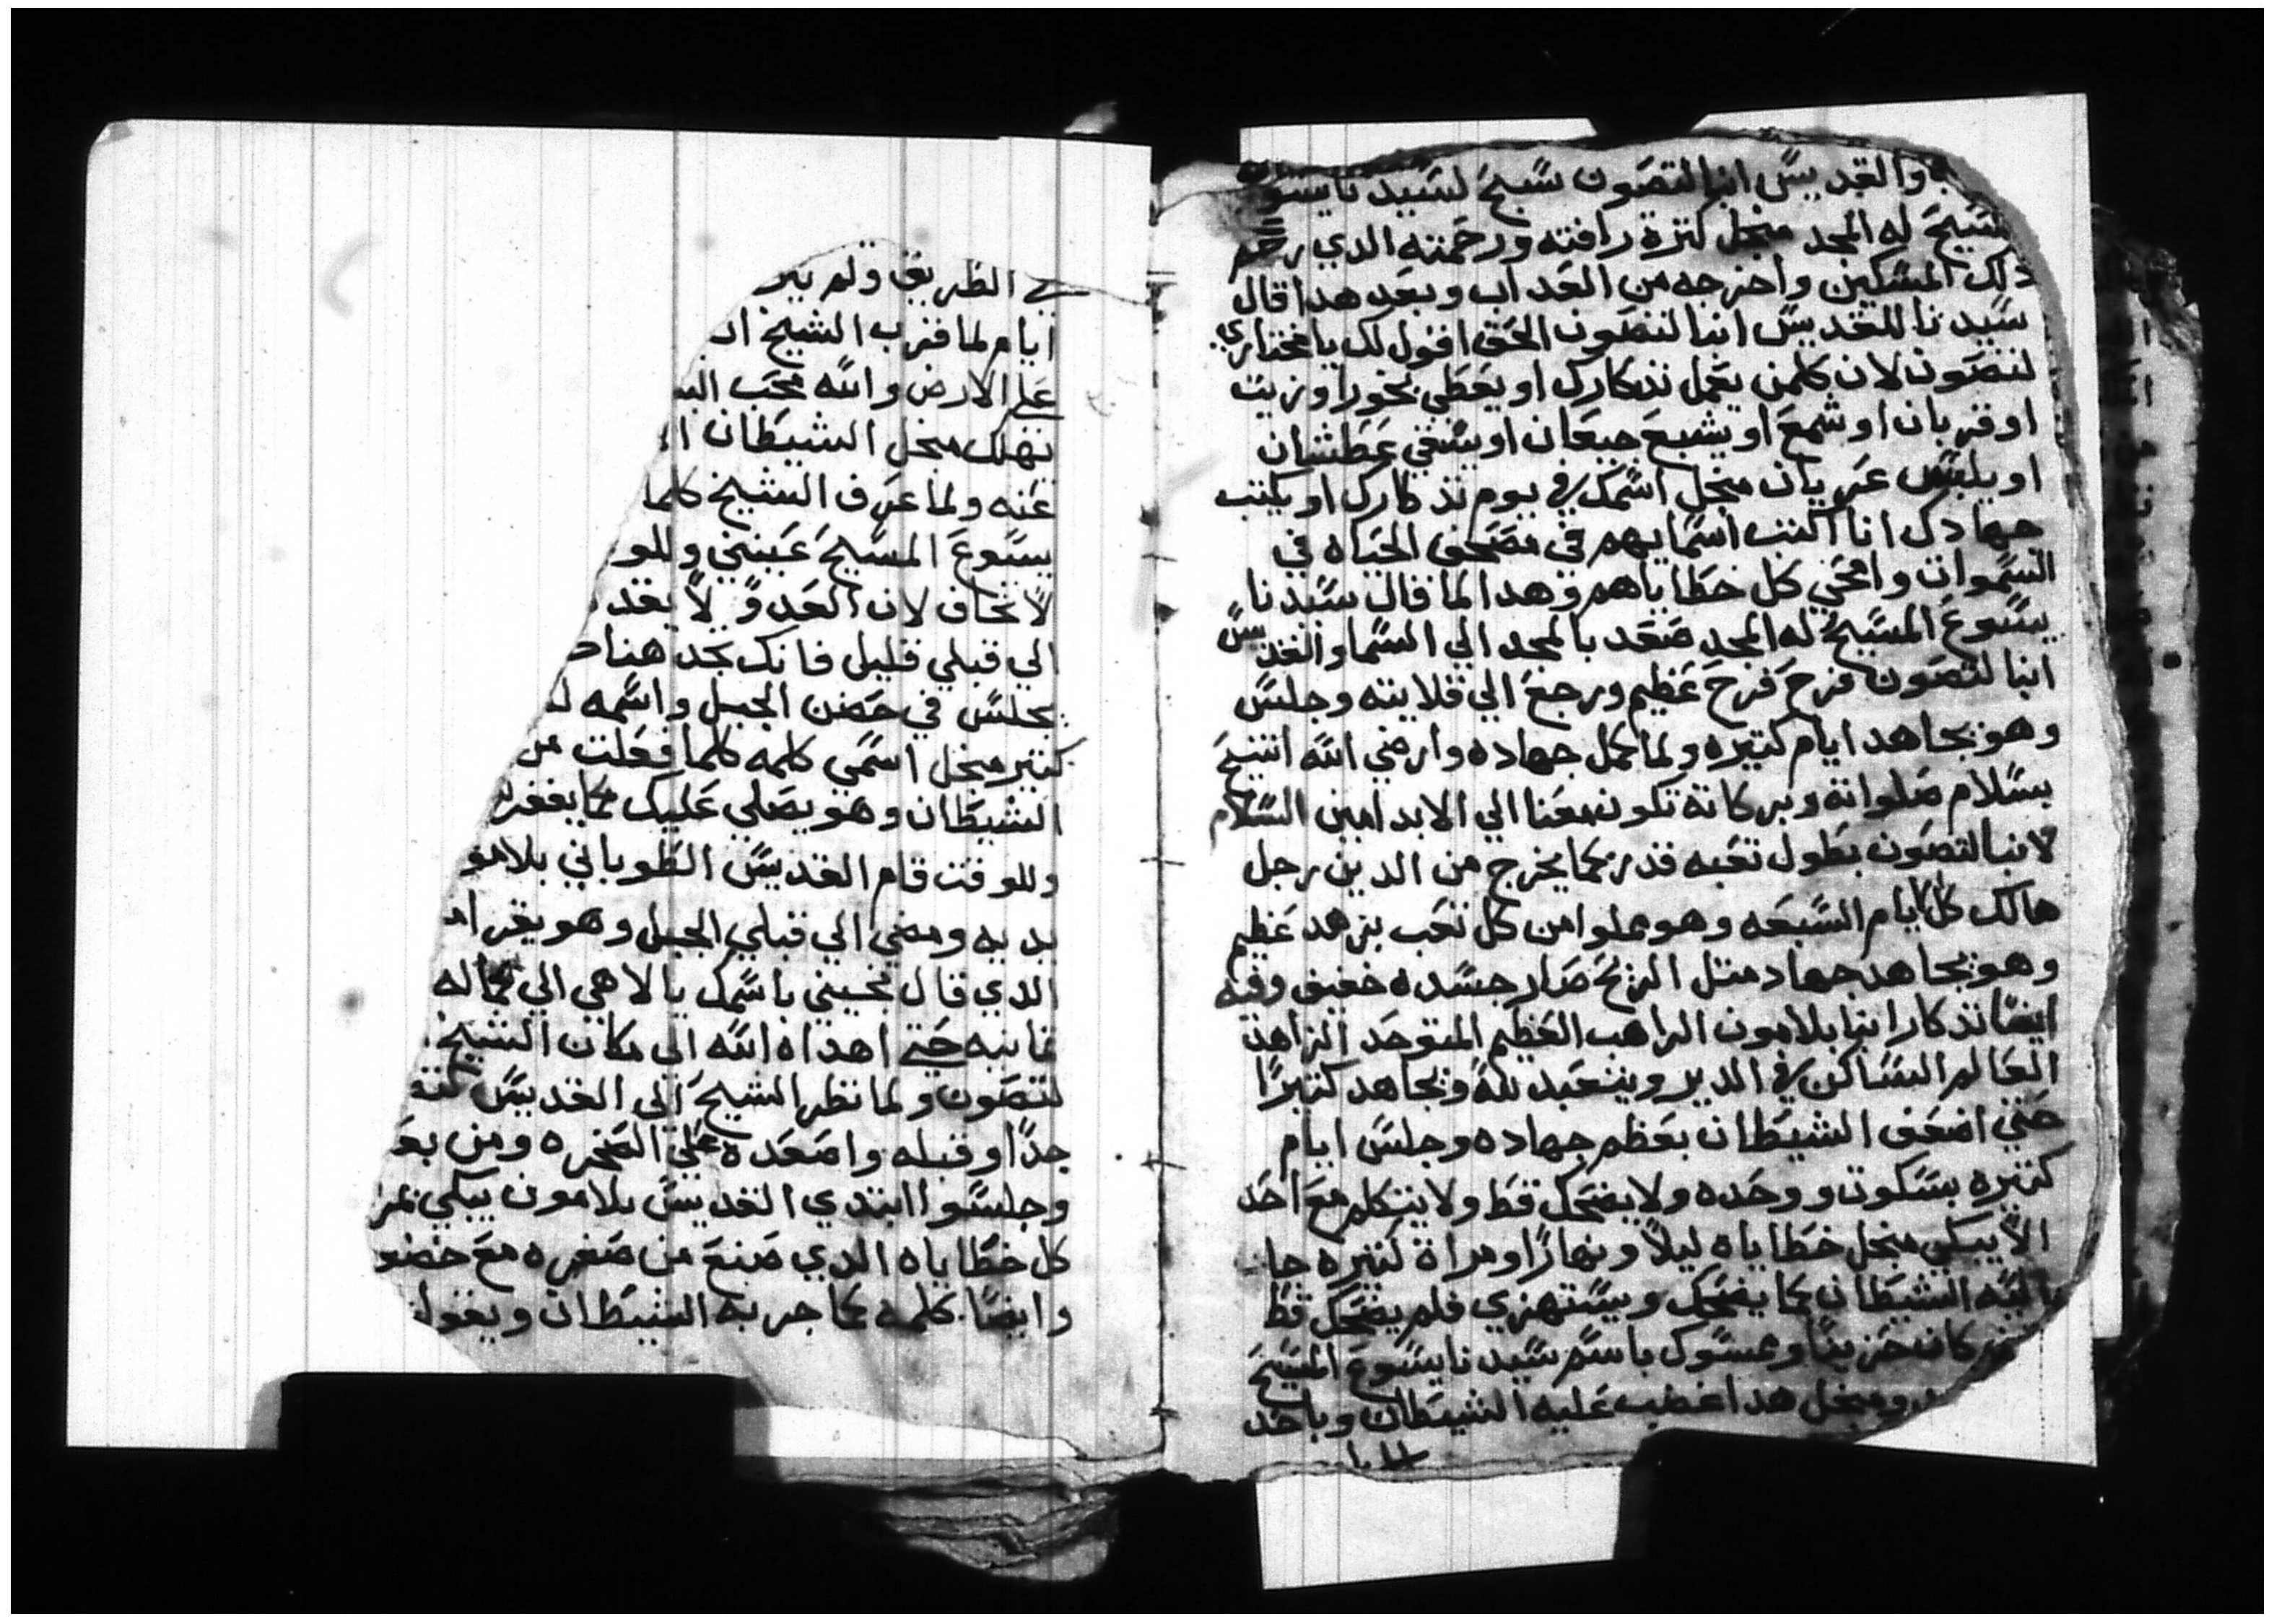 والقديس انبا لتصون سبح لسيدنا يسوع
المسيح له المجد منجل كترة رافته ورحمته الدي رحم
دلك المسكين واخرجه من العداب وبعد هدا قال
سيدنا للقديس انبا لتصون الحق اقول لك يا مختاري
لتصون لان كلمن يعمل تدكارك او يعطي بخور او زيت
او قربان او شمع او يشبع جيعان او يسقي عطشان
او يلبس عريان منجل اسمك في يوم تدكارك او يكتب
جهادك انا اكتب اسمايهم في مصحف الحياه في
السموات وامحي كل خطاياهم وهدا لما قال سيدنا
يسوع المسيح له المجد صعد بالمجد الي السما والقديس
انبا لتصون فرح فرح عظيم ورجع الي قلايته وجلس
وهو يجاهد ايام كتيره ولما كمل جهاده وارضي الله اتنيح
بسلام صلواته وبركاته تكون معنا الي الابد امين السلام
لانبا لتصون بطول تعبه قدر كما يخرج من الدين رجل
هالك كل ايام السبعه وهو مملوا من كل تعب بزهد عظيم
وهو يجاهد جهاد متل الريح صار جسده خفيف وفيه
ايضا تدكار انبا بلامون الراهب العظيم المتوحد الزاهد
العالم الساكن في الدير ويتعبد لله ويجاهد كتيرا
حتي اضعف الشيطان بعظم جهاده وجلس ايام
كتيره بسكون ووحده ولا يضحك قط ولا يتكلم مع احد
الا يبكي منجل خطاياه ليلا ونهارا ومراة كتيره جا
اليه الشيطان كما يضحك ويستهزي فلم يضحك قط
كان حزينا وممسوك باسم سيدنا يسوع المسيح
ومنجل هدا غضب عليه الشيطان وياخد
في الطريق ولم ير
ايام لما قرب الشيخ ان
علي الارض والله محب
تهلك منجل الشيطان
عنه ولما عرف الشيخ كلما
يسوع المسيح عينني وللو
لا تخاف لان العدو لا يقد
الي قبلي قليل فانك تجد هنا
يجلس في حضن الجبل واسمه
كتير منجل اسمي كلمه كلما فعلت من
الشيطان وهو يصلي عليك كما يغفر
وللوقت قام القديس الطوباني بلامو
يديه ومضي الي قبلي الجبل وهو يقرا
الدي قال نجيني باسمك يا الاهي الي كماله
غايبه حتي اهداه الله الي مكان الشيخ
لتصون ولما نظر الشيخ الي القديس
جدا وقبله واصعده علي الصخره ومن بعد
وجلسوا ابتدي القديس بلامون يبكي
كل خطاياه الدي صنع من صغره مع خضو
وايضا كلمه كما جربه الشيطان ويقول